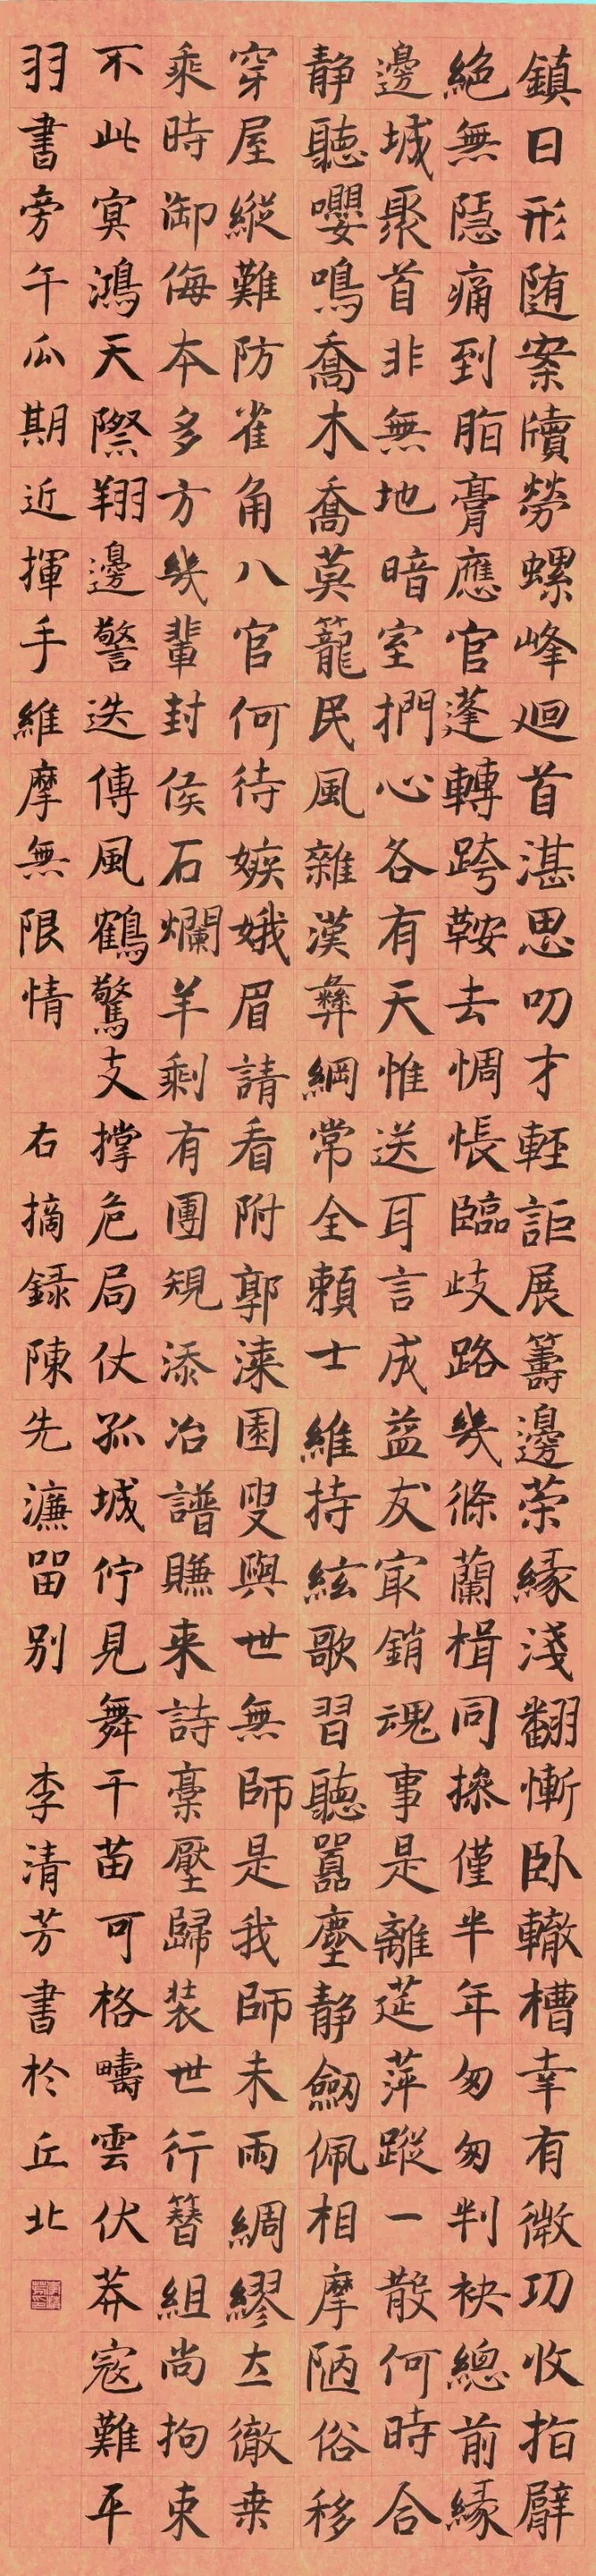 鎮日形随案牘勞螺峰廻首湛思叨才輊詎展籌邊荣緣淺翻慚卧轍槽幸有微功收指臂
絶無隱痛到脂膏應官蓬轉跨鞍去惆悵臨歧路幾條蘭楫同操僅半年匆匆判袂總前緣
邊城聚首非無地暗室捫心各有天惟送耳言成益友冣銷魂事是離莚萍蹤一散何時合
静聽嚶鳴喬木喬莫籠民風雜漢彝綱常全賴士維持絃歌習聽囂塵静劒佩相摩陋俗移
穿屋縱難防雀角八官何待嫉娥眉請看附郭濼園叟與世無師是我師未雨綢繆徹桒
乘時御侮本多方幾輩封侯石爛羊剩有團規添冶譜賺来詩稾壓歸装世行簪組尚拘束
不此㝠鴻天際翔邊警迭傳風鶴驚支撑危局仗孤城佇見舞干苗可格疇雲伏莽寇難平
羽書旁午瓜期近揮手維摩無限情 右摘録陳先濂畱别 李清芳書於丘北